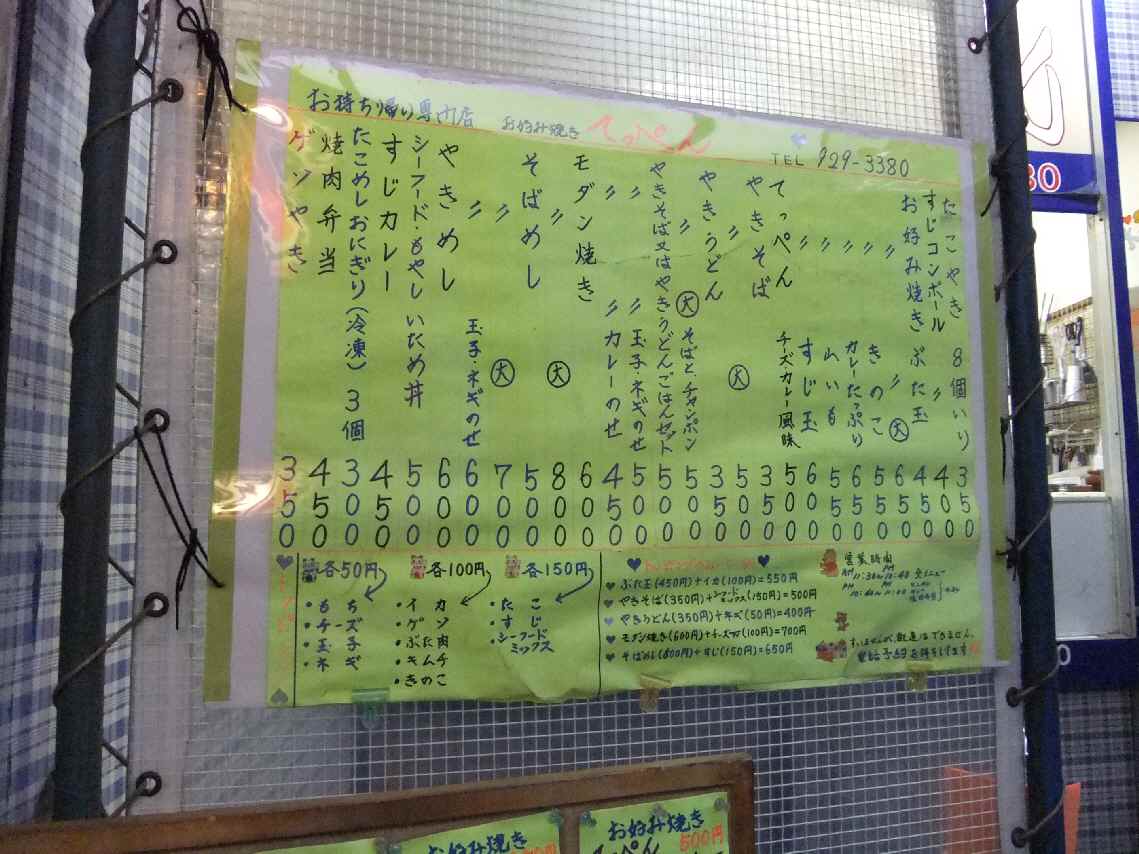 お持ち帰り専門店 お好み焼き てっぺん TEL 929-3380
たこやき 8個いり 350
すじコンボール 〃 400
お好み焼き ぶた玉 450
〃 〃 大 650
〃 きのこ 550
〃 カレーたっぷり 650
〃 山いも 550
〃 すじ玉 600
てっぺん チーズ・カレー風味 500
やきそば 350
〃 大 500
やきうどん 350
〃 大 そばと、チャンポン 500
やきそば又はやきうどんごはんセット 500
〃 〃 玉子・ネギのせ 500
〃 〃 カレーのせ 450
モダン焼き 600
〃 大 800
そばめし 500
〃 大 700
〃 玉子・ネギのせ 600
やきめし 600
シーフード・もやしいため丼 500
すじカレー 450
たこめしおにぎり(冷凍) 3個 300
焼肉弁当 450
ゲソやき 350
トッピング
各50円
・もち
・チーズ
・玉子
・ネギ
各100円
・イカ
・ゲソ
・ぶた肉
・キムチ
・きのこ
各150円
・たこ
・すじ
・シーフードミックス
ぶた玉(450円)+イカ(100円)=550円
やきそば(350円)+シーフードミックス(150円)=500円
やきうどん(350円)+ネギ(50円)=400円
モダン焼き(600円)+チーズ(100円)=700円
そばめし(500円)+すじ(150円)=650円
営業時間
すいませんが、配達はできません。
電話予約お待ちしてます
お好み焼き
お好み焼き 500円
てっぺん